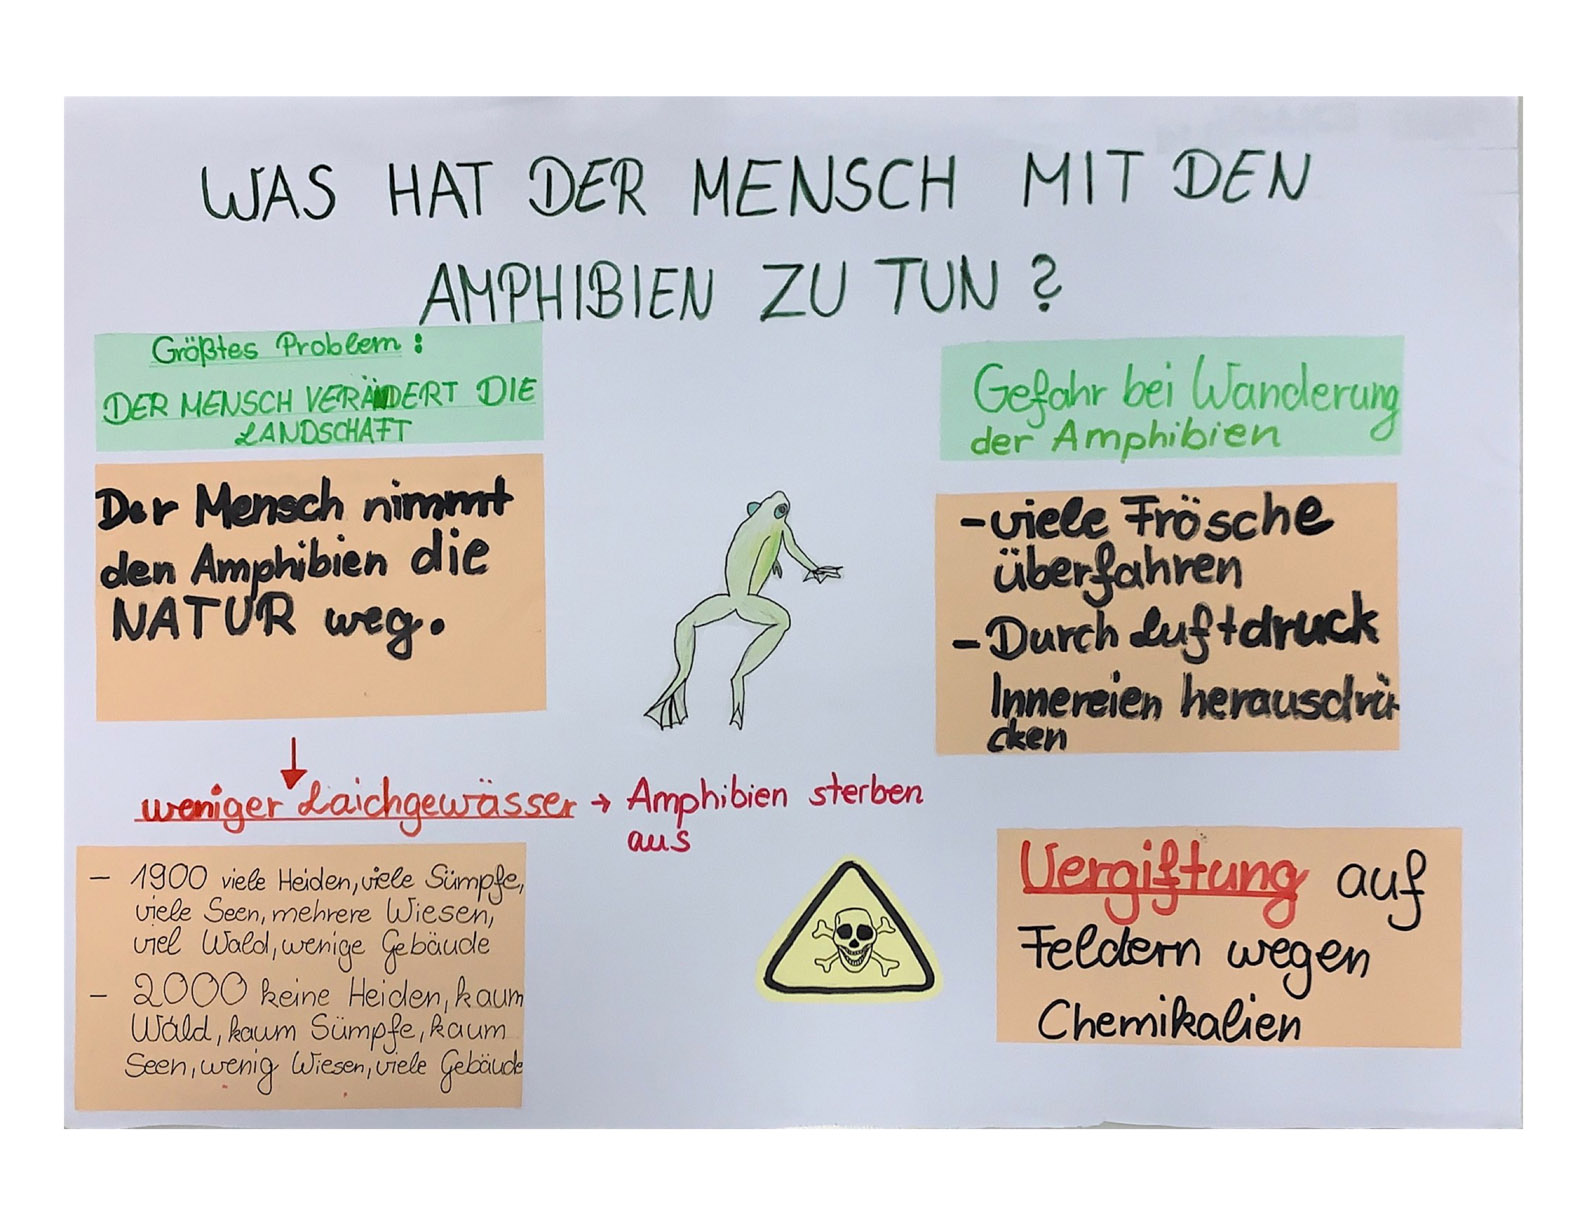 WAS HAT DER MENSCH MIT DEN
AMPHIBIEN ZU TUN ?
Größtes Problem :
DER MENSCH VERÄNDERT DIE
LANDSCHAFT
Der Mensch nimmt
den Amphibien die
NATUR weg.
weniger Laichgewässer → Amphibien sterben
aus
- 1900 viele Heiden, viele Sümpfe,
viele Seen, mehrere Wiesen,
viel Wald, wenige Gebäude
- 2000 keine Heiden, kaum
Wald, kaum Sümpfe, kaum
Seen, wenig Wiesen, viele Gebäude
Gefahr bei Wanderung
der Amphibien
- viele Frösche
überfahren
- Durch Luftdruck
Innereien herausdrü
cken
Vergiftung auf
Feldern wegen
Chemikalien